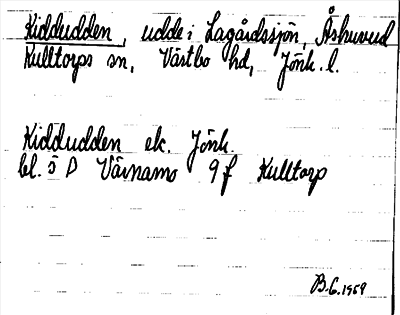 Kiddudden, udde i Lagårdssjön, Åshuvud
Kulltorps sn, Västbo hd, Jönk. l.
Kiddudden ek. Jönk.
bl. 5 D Värnamo 9 f Kulltorp
B.G. 1959